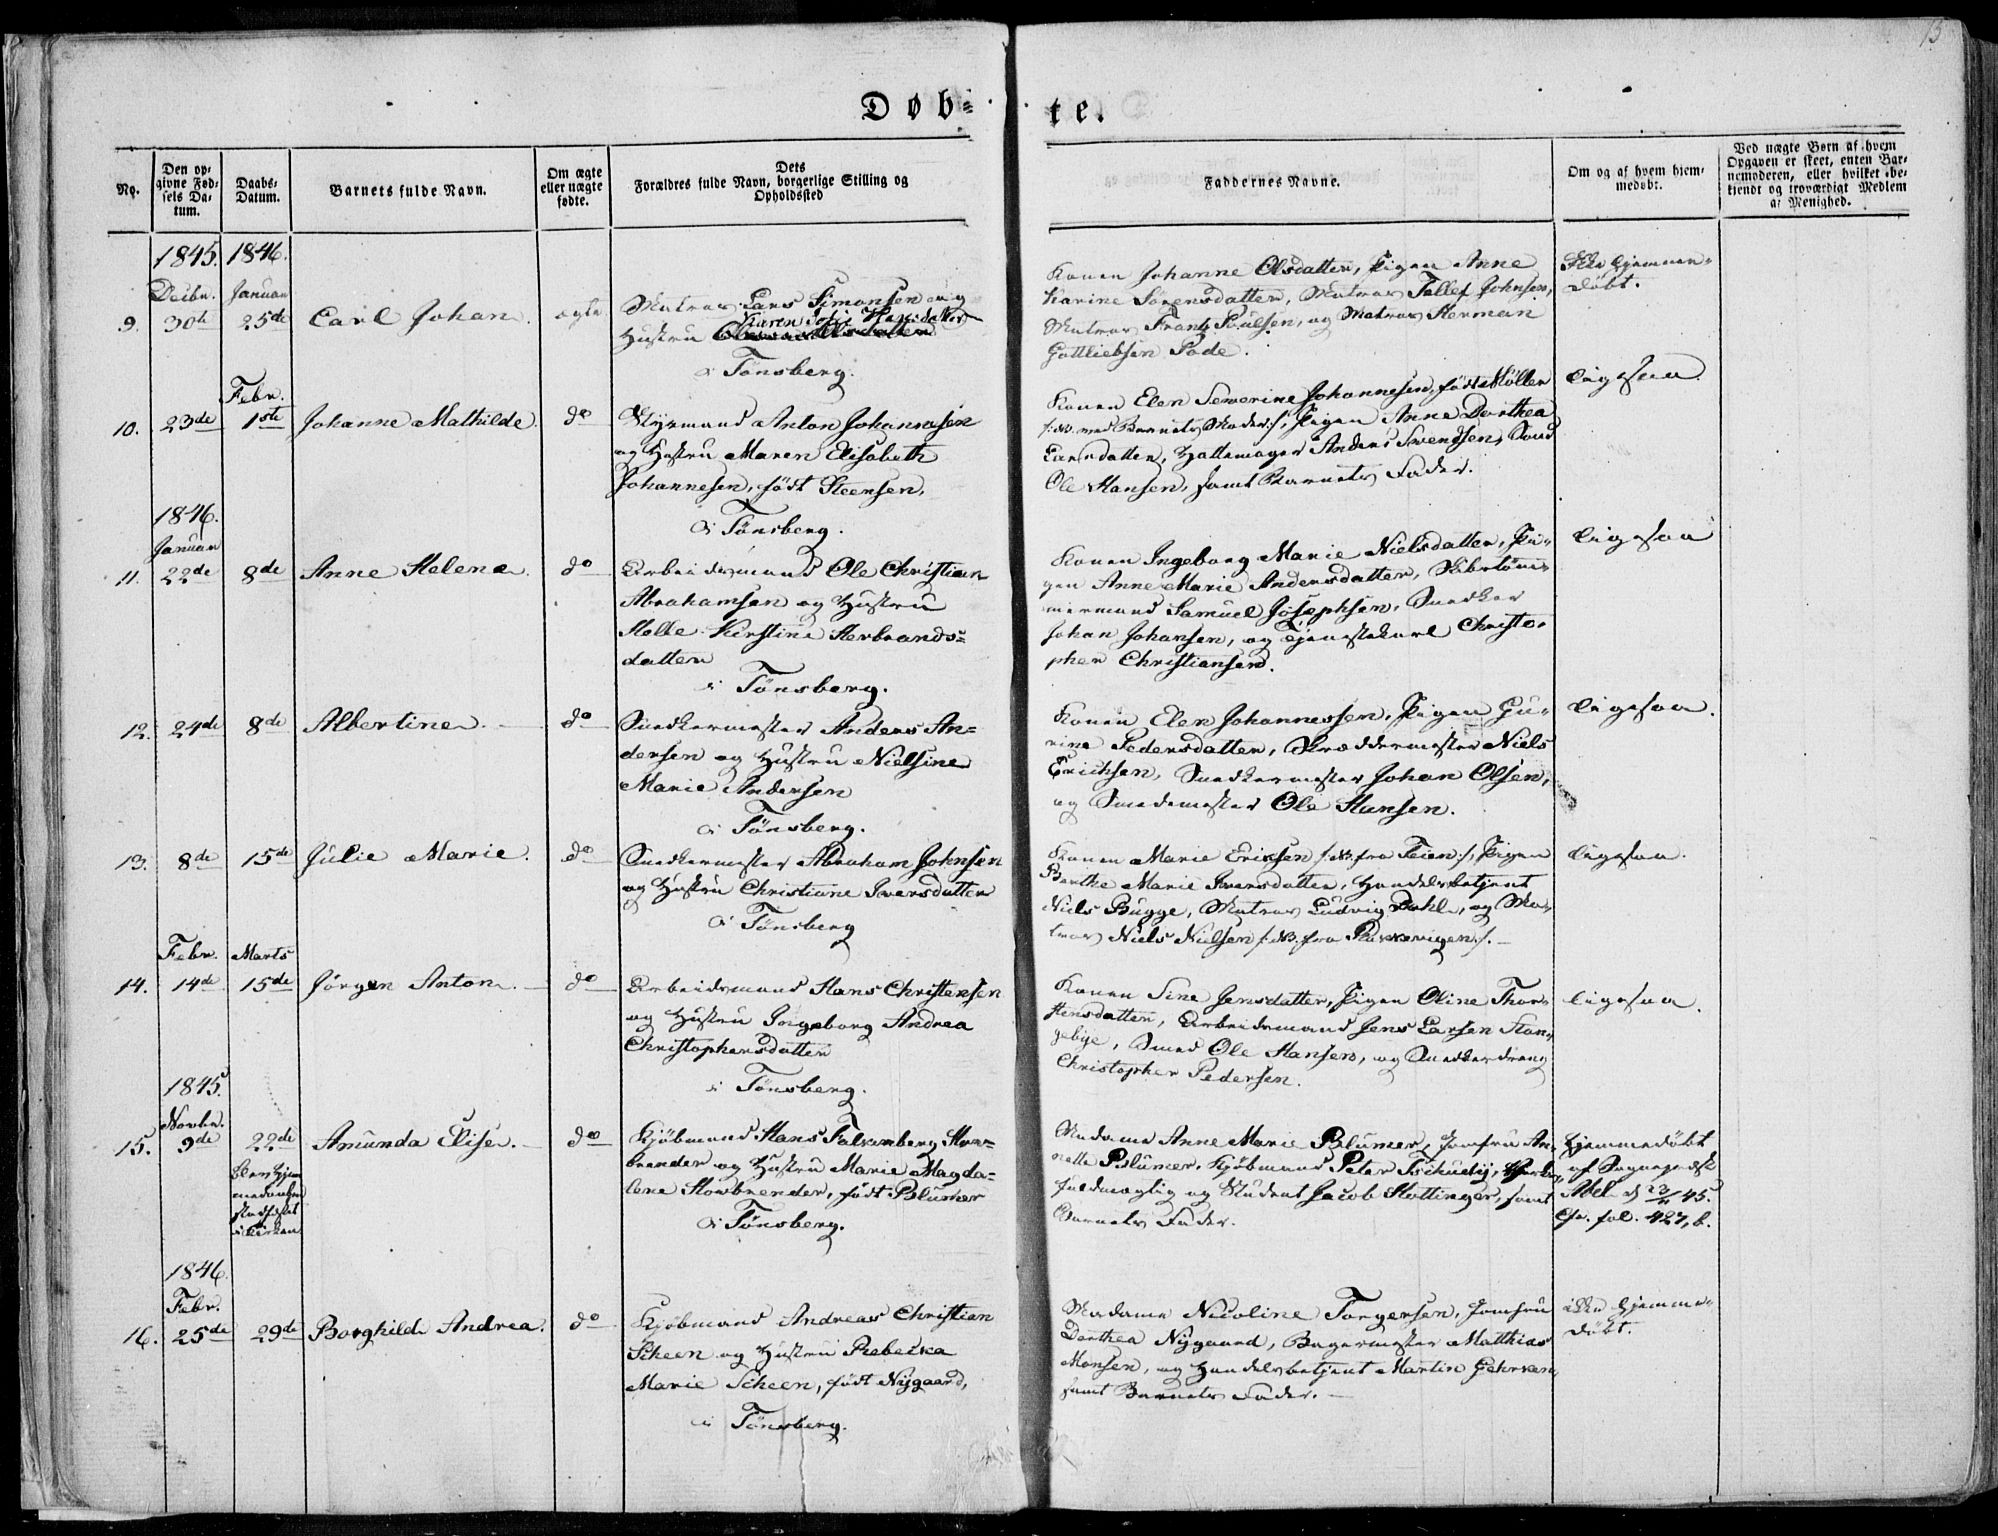 13
Døb=
te.
No.
Den op=
givne Fød=
sels Da=
tum.
Daabs=
Datum.
Barnets fulde Navn.
Om ægte
eller uægte
fødte.
Dets
Forældres fulde Navn, borgerlige Stilling og
Opholdssted
Faddernes Navne.
Om og af hvem hjem=
medøbt.
Ved uægte Børn af hvem
Opgaven er skeet, enten Bar=
nemoderen, eller hvilket be=
kjendt og troværdigt Medlem
af Menighed.
1845. 1846.
Decbr. Januar
9. 30te 25de Carl Johan. ægte
Matros Lars Simonsen og
Karen Sofie Hansdatter
Hustru
i Tønsberg.
Konen Johanne Olsdatter, Pigen Anne
Karine Sørensdatter, Matros Tellef Johnsen,
Matros Frantz Paulsen, og Matros Herman
Gottliebsen Pode.
Ikke hjemme=
døbt.
Febr.
10. 23de 1ste Johanne Mathilde. do
Styrmand Anton Johannesen
og Hustru Maren Elisabeth
Johannesen, født Steensen,
i Tønsberg.
Konen Elen Severine Johannesen, født Møller
/: NB. med Barnets Moder :/, Pigen Anne Dorthea
Larsdatter, Hattemager Anders Svendsen, Smed
Ole Hansen, samt Barnets Fader.
ligesaa.
1846.
Januar
11. 22de 8de Anne Helene. do
Arbeidsmand Ole Christian
Abrahamsen og Hustru
Helle Kirstine Herbrands=
datter
i Tønsberg.
Konen Ingeborg Marie Nielsdatter, Pi=
gen Anne Marie Andersdatter, Skibstøm=
mermand Samuel Josephsen, Snedker
Johan Johansen, og Tjenestekarl Christo=
pher Christiansen.
ligesaa
12. 24de 8de Albertine. do
Snedkermester Anders An=
dersen og Hustru Nielsine
Marie Andersen
i Tønsberg.
Konen Elen Johannessen, Pigen Gu=
rine Pedersdatter, Skræddermester Niels
Erichsen, Snedkermester Johan Olsen,
og Smedemester Ole Hansen.
ligesaa.
13. 8de 15de Julie Marie. do
Snedkermester Abraham Johnsen
og Hustru Christiane Iversdatter
i Tønsberg
Konen Marie Eriksen /: NB. fra Teien :/, Pigen
Berthe Marie Iversdatter, Handelsbetjent
Niels Bugge, Matros Ludvig Dahl, og Ma=
tros Niels Nielsen /: NB. fra :/. —
ligesaa.
Febr. Marts
14. 14de 15de Jørgen Anton. do
Arbeidsmand Hans Christensen
og Hustru Ingeborg Andrea
Christophersdatter
i Tønsberg.
Konen Sine Jensdatter, Pigen Oline Thor=
stensdatter, Arbeidsmand Jens Larsen Stan=
gebye, Smed Ole Hansen, og Snedkerdreng
Christopher Pedersen.
ligesaa.
1845.
Novbr.
15. 9de 22de Amunda Elise. do
blev hjem=
medaaben
stadfæstet
i Kirken
Kjøbmand Hans Falkenberg Hor=
brender og Hustru Marie Magda=
lene Horbrender, født Blumer
i Tønsberg.
Madame Anne Marie Blumer, Jomfru An=
nette Blumer, Kjøbmand Peter Tschudij,
fuldmægtig og Student Jacob Hottinger, samt
Barnets Fader.
hjemmedøbt
af Sognepræst
Abel d 45.
cfr. fol. 427, b.
1846.
Febr.
16. 25de 29de Borghilde Andrea. do
Kjøbmand Andreas Christian
Scheen og Hustru Rebecka
Marie Scheen, født Nygaard,
i Tønsberg.
Madame Nicoline Torgersen, Jomfru
Dorthea Nygaard, Bagermester Matthias
Monsen, og Handelsbetjent Martin Gehrken,
samt Barnets Fader. —
ikke hjemme=
døbt.